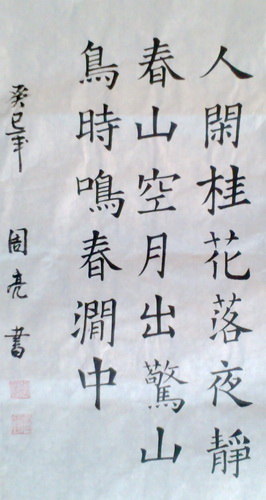 人閑桂花落夜靜
春山空月出驚山
鳥時鳴春澗中
癸巳年 周亮書